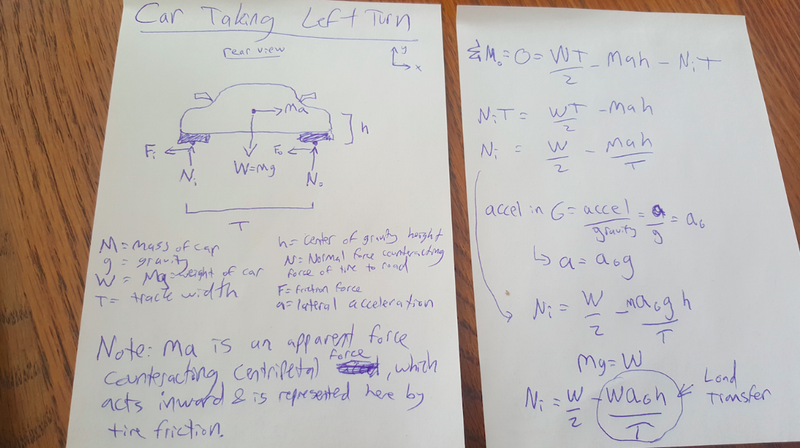 Car Taking Left Turn
rear view
y
x
Ma
h
Fi
Fo
W=Mg
Ni
No
T
M = mass of car
g = gravity
W = Mg = weight of car
T = track width
h = center of gravity height
N = Normal force counteracting
force of tire to road
F = friction force
a = lateral acceleration
Note: Ma is an apparent force
counteracting centripetal force, which
acts inward & is represented here by
tire friction.
ΣMo = 0 = WT/2 - Mah - NiT
NiT = WT/2 - Mah
Ni = W/2 - Mah/T
accel in G = accel/gravity = a/g = aG
↳ a = aGg
Ni = W/2 - MaGgh/T
Mg = W
Ni = W/2 - WaGh/T ← Load
Transfer